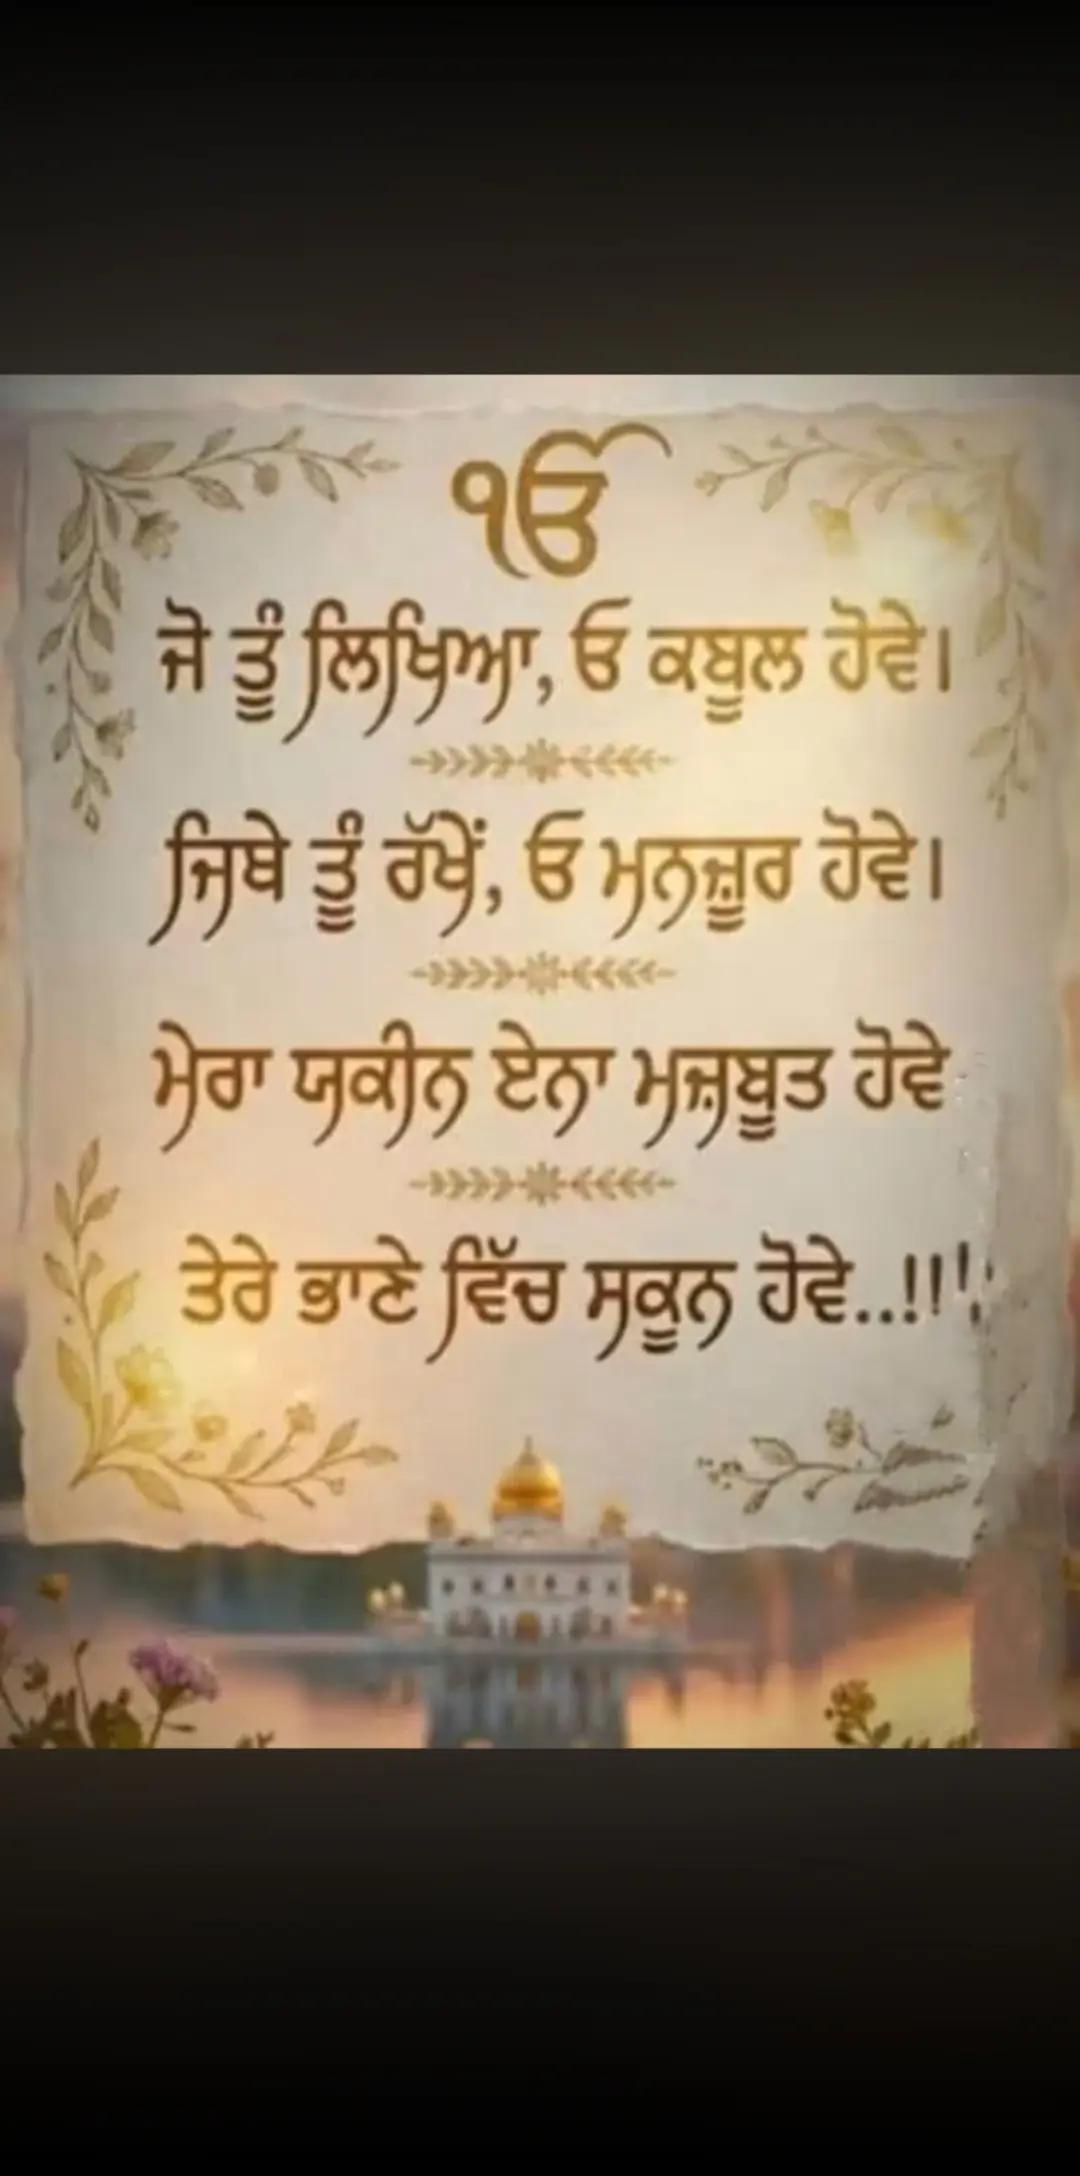 ੴ
ਜੋ ਤੂੰ ਲਿਖਿਆ, ਓ ਕਬੂਲ ਹੋਵੇ।
ਜਿਥੇ ਤੂੰ ਰੱਖੇਂ, ਓ ਮਨਜ਼ੂਰ ਹੋਵੇ।
ਮੇਰਾ ਯਕੀਨ ਏਨਾ ਮਜ਼ਬੂਤ ਹੋਵੇ
ਤੇਰੇ ਭਾਣੇ ਵਿੱਚ ਸਕੂਨ ਹੋਵੇ..!!!